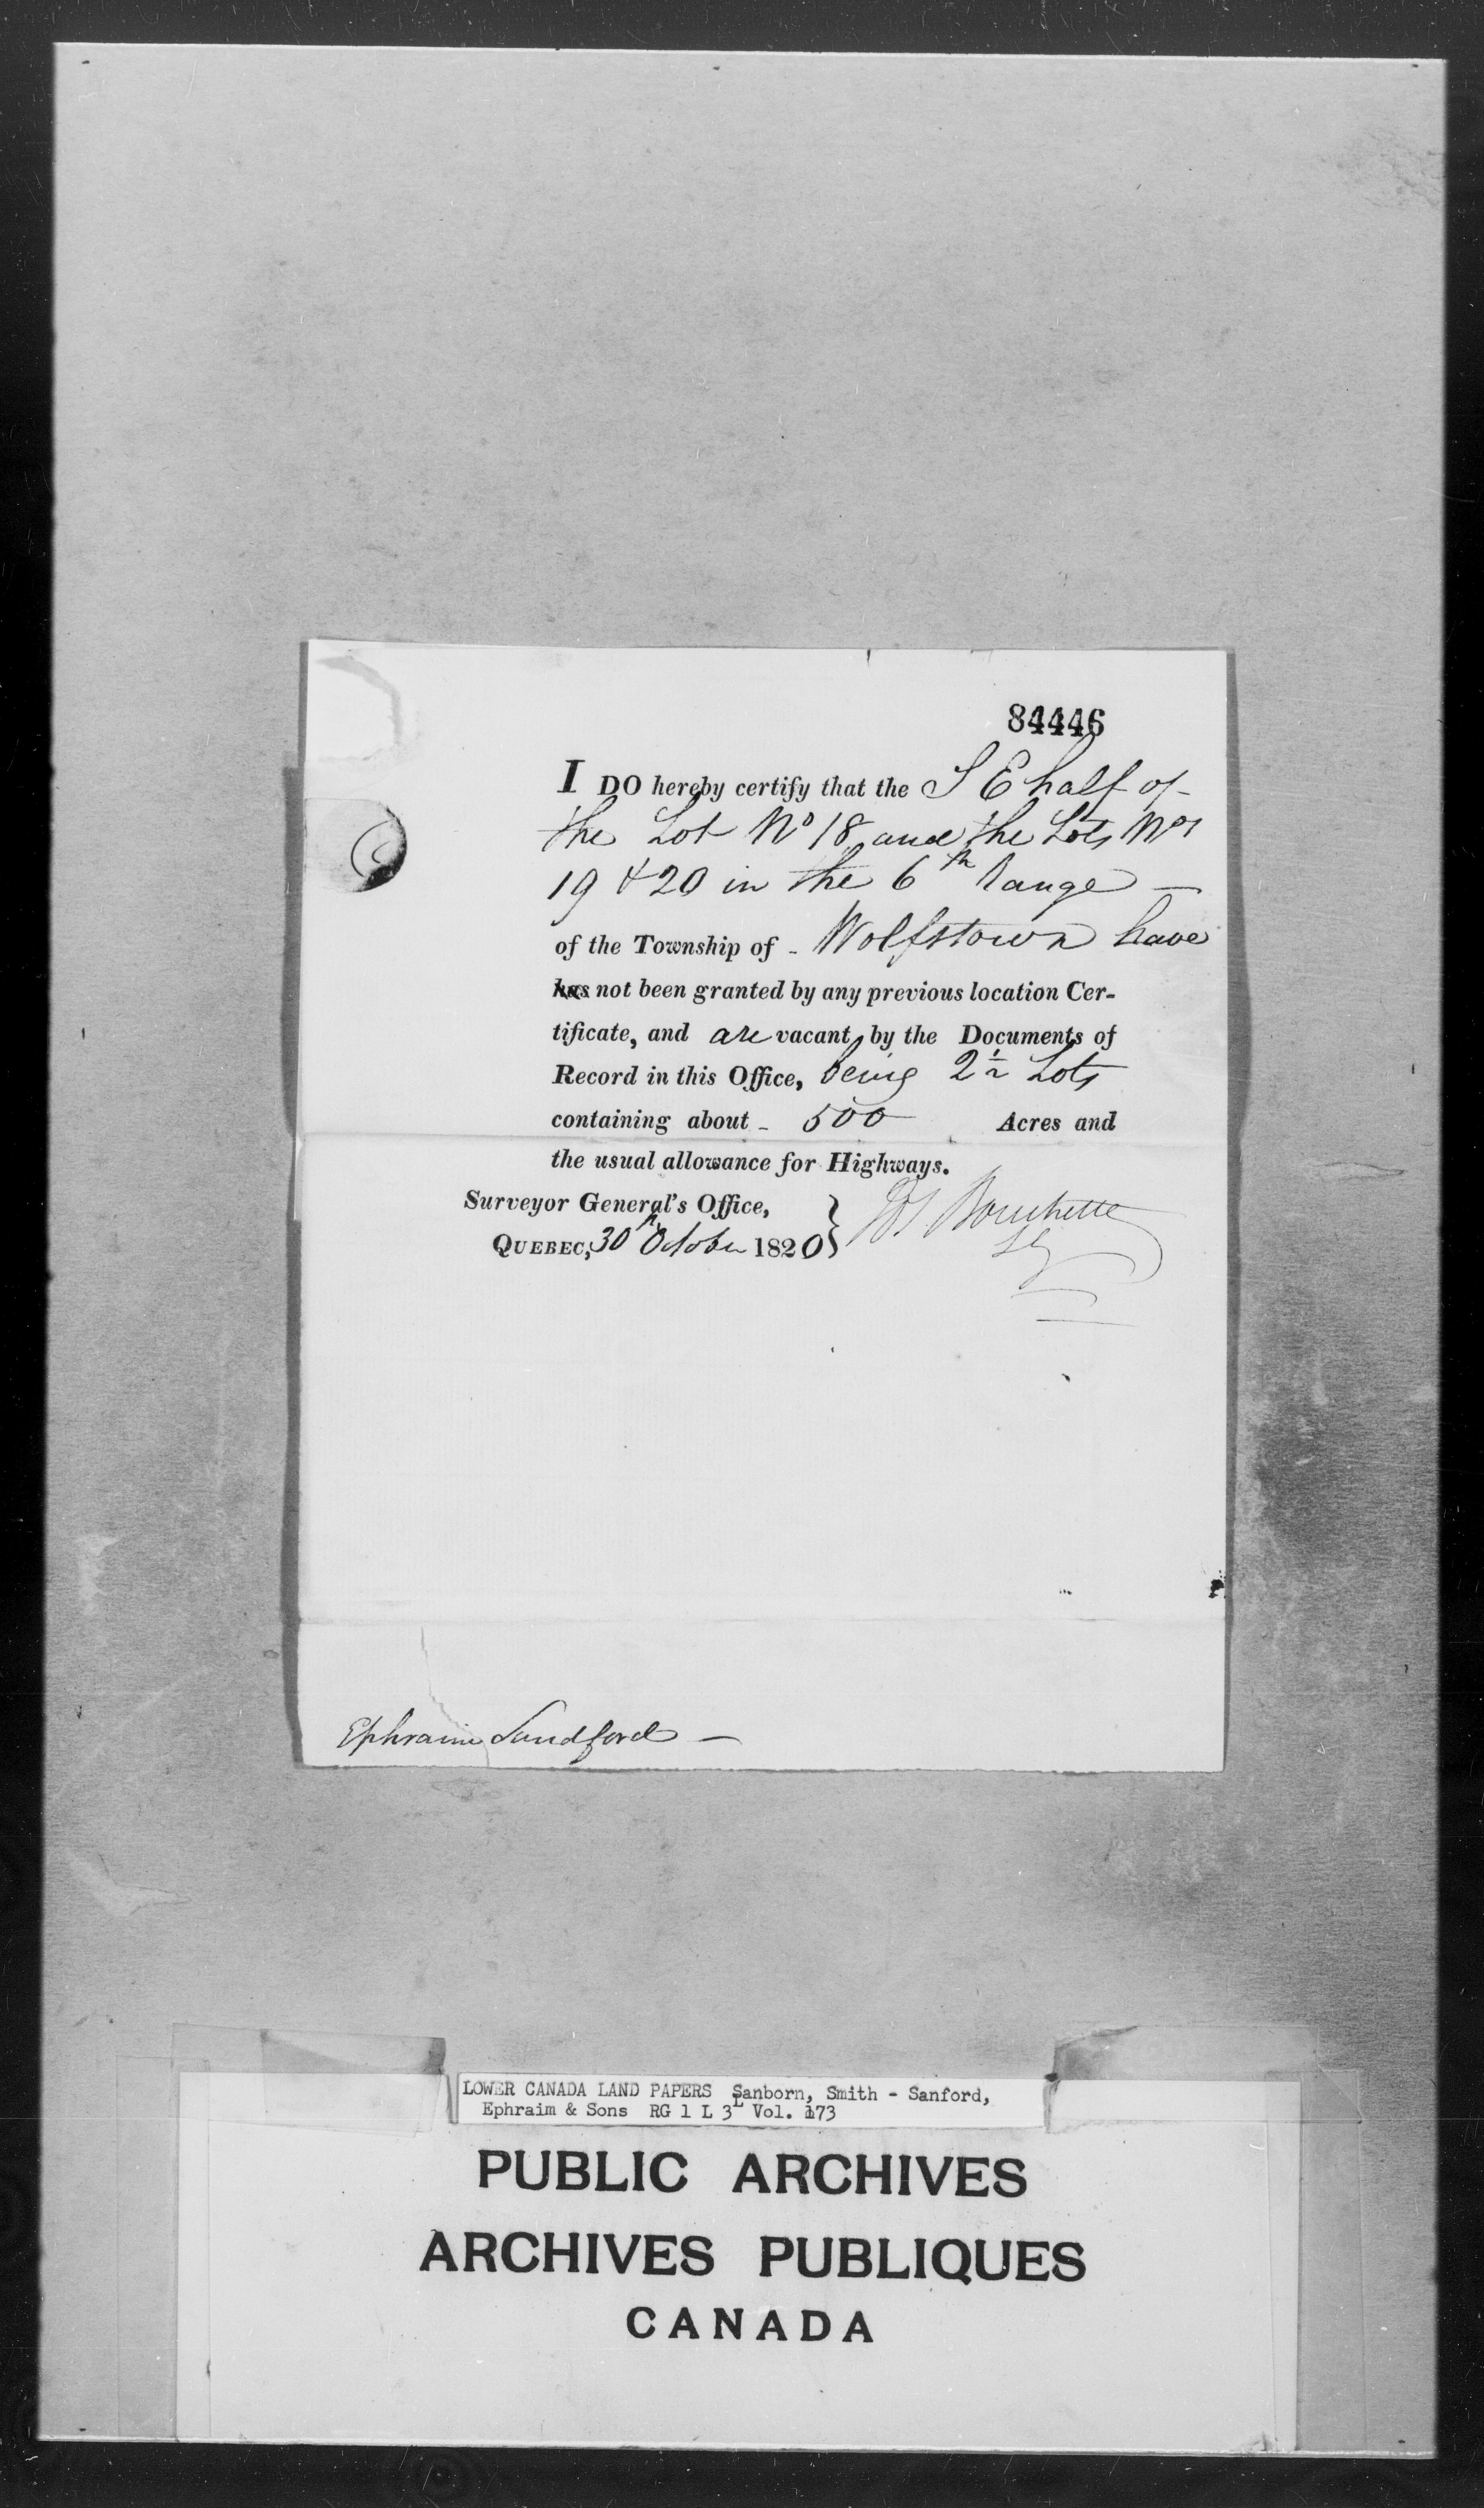 84446
I DO hereby certify that the S E half of
the Lot No 18 and the Lots Nos
19 & 20 in the 6th Range —
of the Township of - Wolfstown have
has not been granted by any previous location Cer-
tificate, and are vacant by the Documents of
Record in this Office, being 2½ Lots
containing about - 500 Acres and
the usual allowance for Highways.
Surveyor General's Office,
QUEBEC, 30th October 1820 } Jos Bouchette
SG
Ephraim Sandford —
LOWER CANADA LAND PAPERS Sanborn, Smith - Sanford,
Ephraim & Sons RG 1 L 3L Vol. 173
PUBLIC ARCHIVES
ARCHIVES PUBLIQUES
CANADA